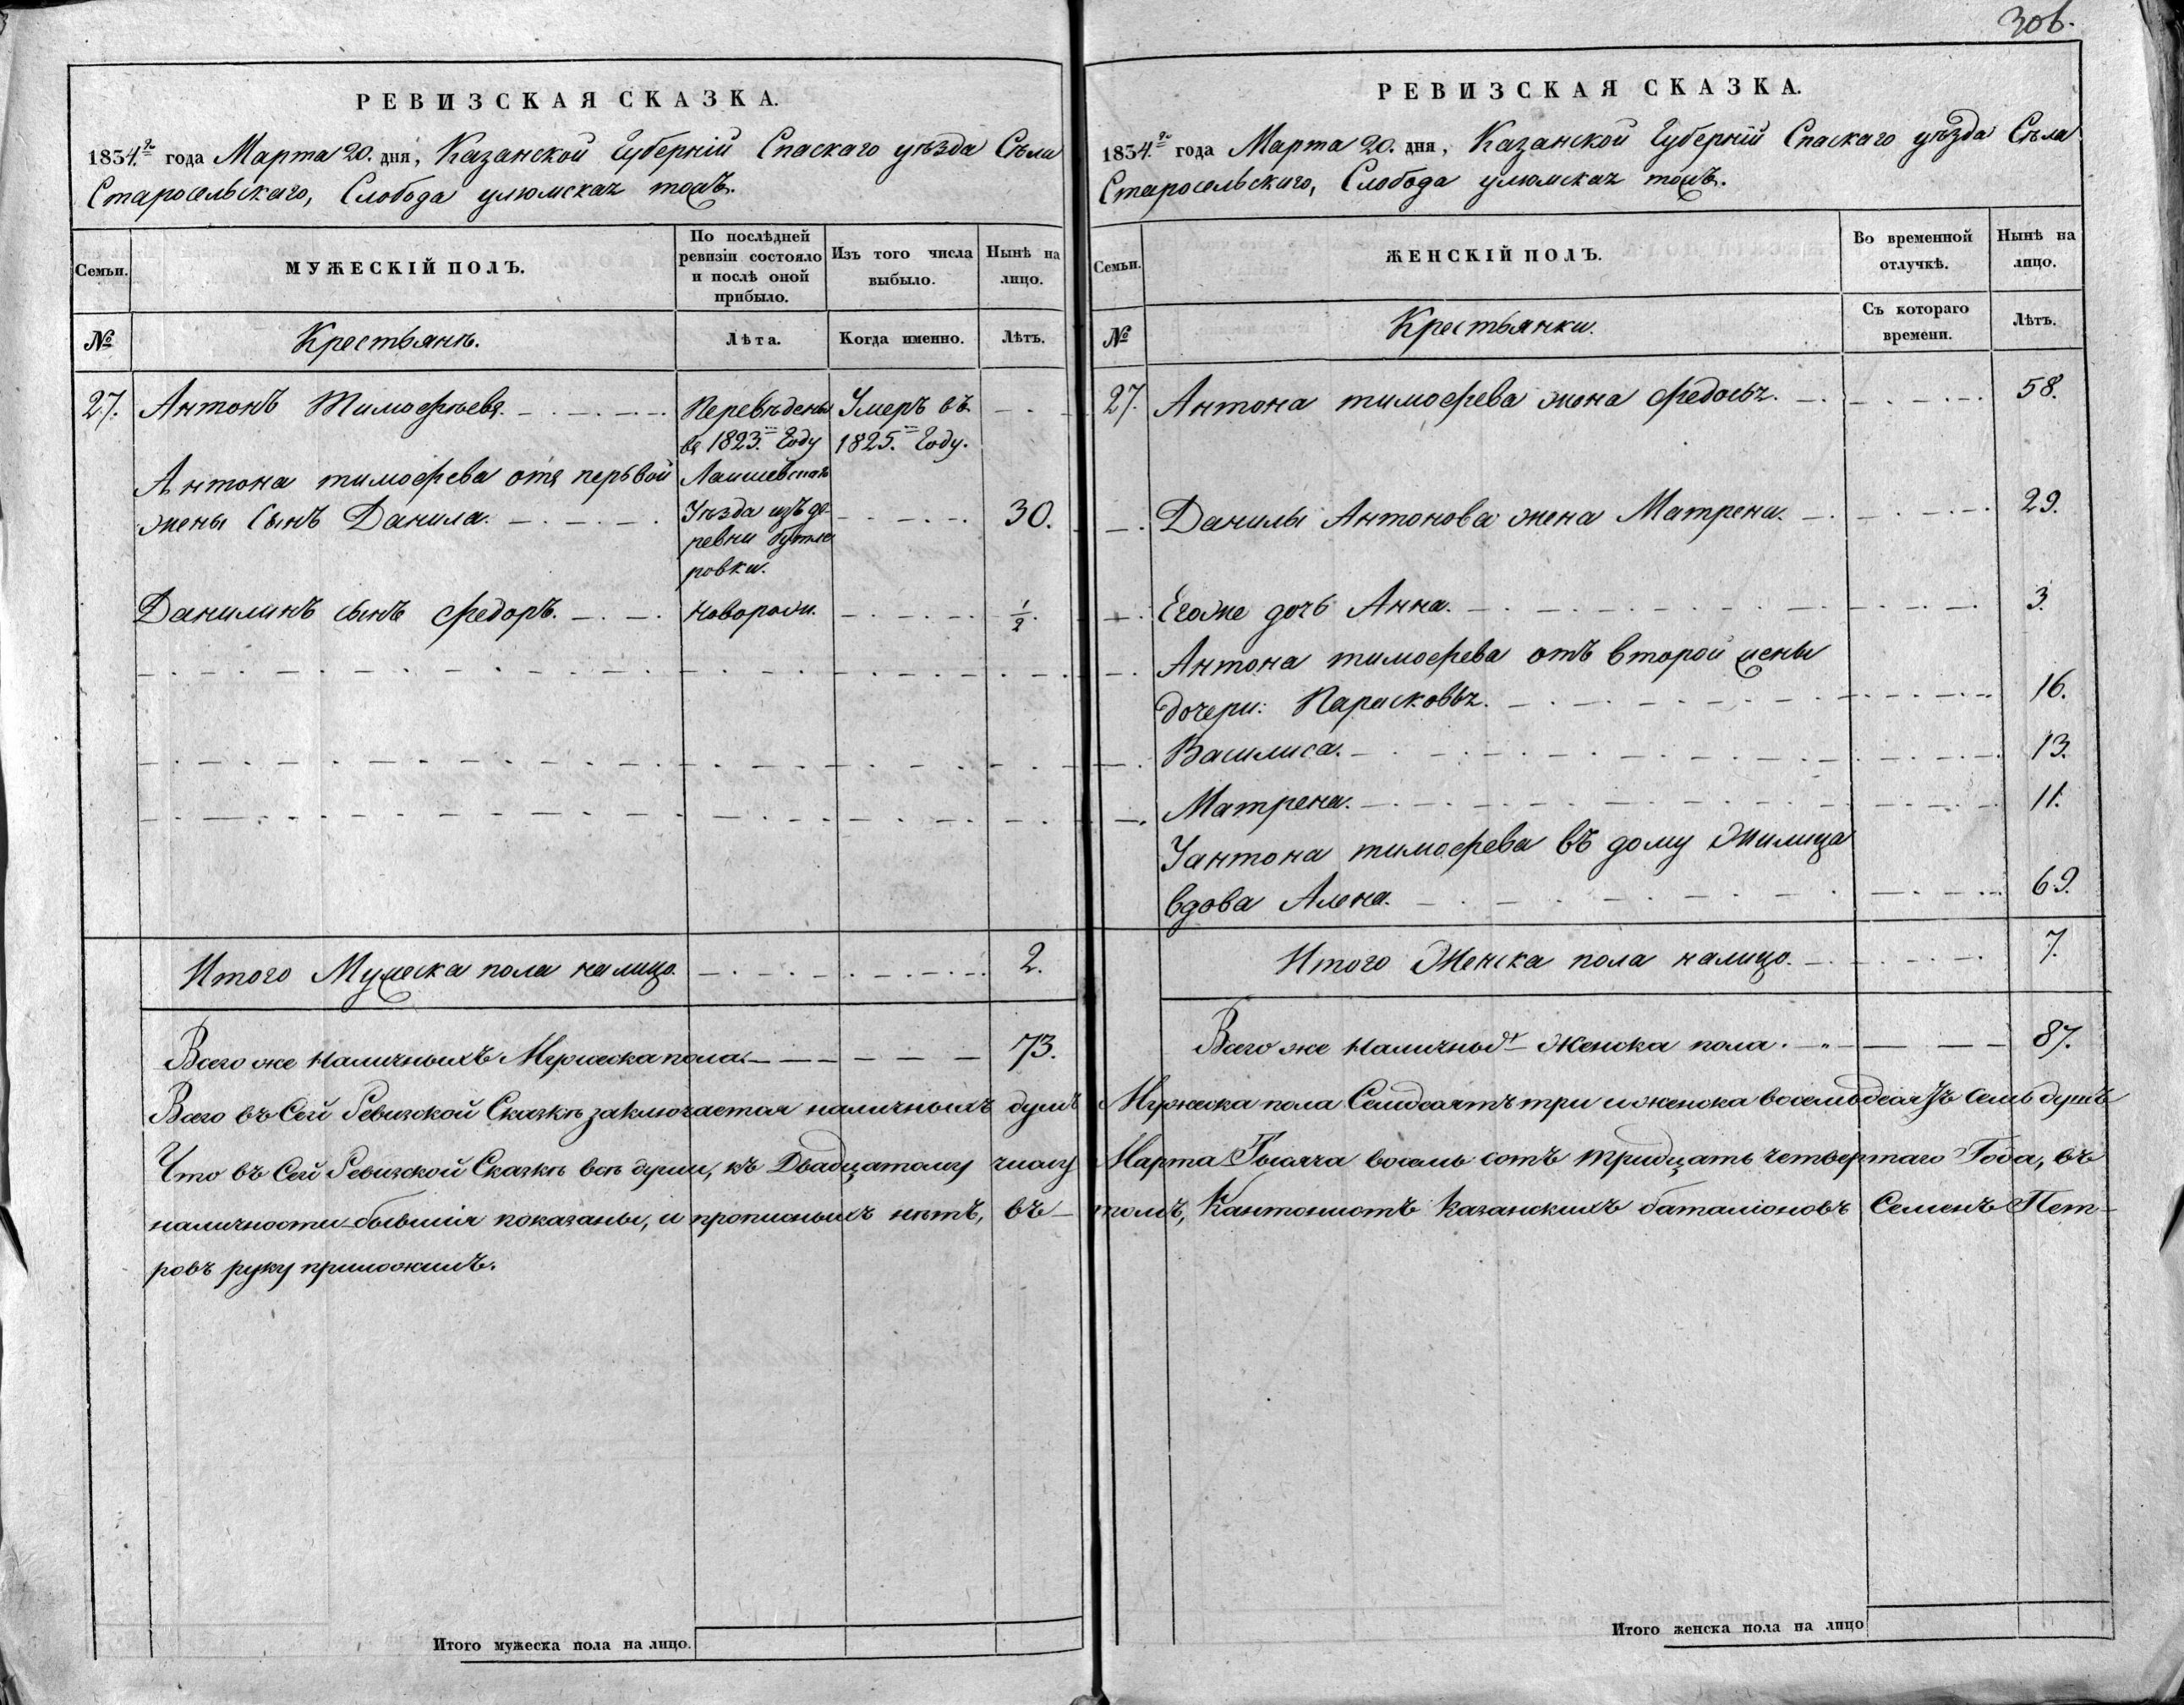 306.
РЕВИЗСКАЯ СКАЗКА.
1834.го года Марта 20. дня, Казанской Губернiй Спаскаго уѣзда Сѣла
Старосельскаго, Слобода улюмская тожъ.
Семьи.
МУЖЕСКІЙ ПОЛЪ.
По послѣдней ревизіи состояло и послѣ оной прибыло.
Изъ того числа выбыло.
Нынѣ на лицо.
№
Крестьянѣ.
Лѣта.
Когда именно.
Лѣтъ.
27. Антонъ Тимофѣевъ. Перевѣдены Умеръ въ
въ 1823. Году 1825. Году.
Антона тимофева отъ первой Лаишевскаго
жены Сынъ Данила. Уѣзда изъ де- 30.
ревни бутле
ровки.
Данилинъ сынъ Федоръ. Новорожд. 1/2.
Итого Мужеска пола на лицо. 2.
Всего же наличныхъ Мужеска пола. 73.
Итого мужеска пола на лицо.
РЕВИЗСКАЯ СКАЗКА.
1834.го года Марта 20. дня, Казанской Губернiй Спаскаго уѣзда Сѣла
Старосельскаго, Слобода улюмская тожъ.
Семьи.
ЖЕНСКІЙ ПОЛЪ.
Во временной отлучкѣ.
Нынѣ на лицо.
№
Крестьянки.
Съ котораго времени.
Лѣтъ.
27. Антона тимофева жена Федосья. 58.
Данилы Антонова жена Матрена. 29.
Егоже дочь Анна. 3.
Антона тимофева отъ второй жены
дочери: Парасковья. 16.
Василиса. 13.
Матрена. 11.
Уантона тимофева въ дому Жилица
вдова Алена. 69.
Итого Женска пола налицо. 7.
Всего же Наличныхъ Женска пола. 87.
Всего въ Сей Ревизской Сказкѣ заключается наличныхъ душъ Мужеска пола Семдесятъ три и женска восемьдесятъ семь душъ
Что въ Сей Ревизской Сказкѣ всѣ души, къ Двадцатому числу Марта Тысяча восемь сотъ тридцать четвертаго Года, въ
наличности бывшія показаны, и прописныхъ нѣтъ, въ томъ, Кантонистъ Казанскихъ баталіоновъ Семенъ Пет-
ровъ руку приложилъ.
Итого женска пола на лицо